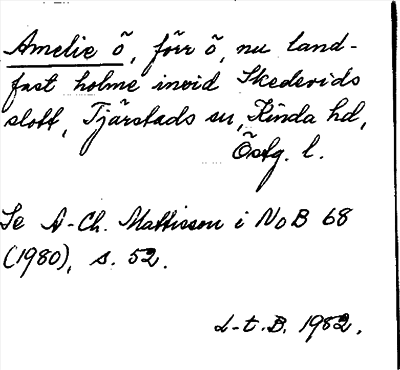 Amelie ö, förr ö, nu land-
fast holme invid Skedevids
slott, Tjärstads sn, Kinda hd,
Östg. l.
Se A-Ch. Mattisson i NoB 68
(1980), s. 52.
L-t.B. 1982.